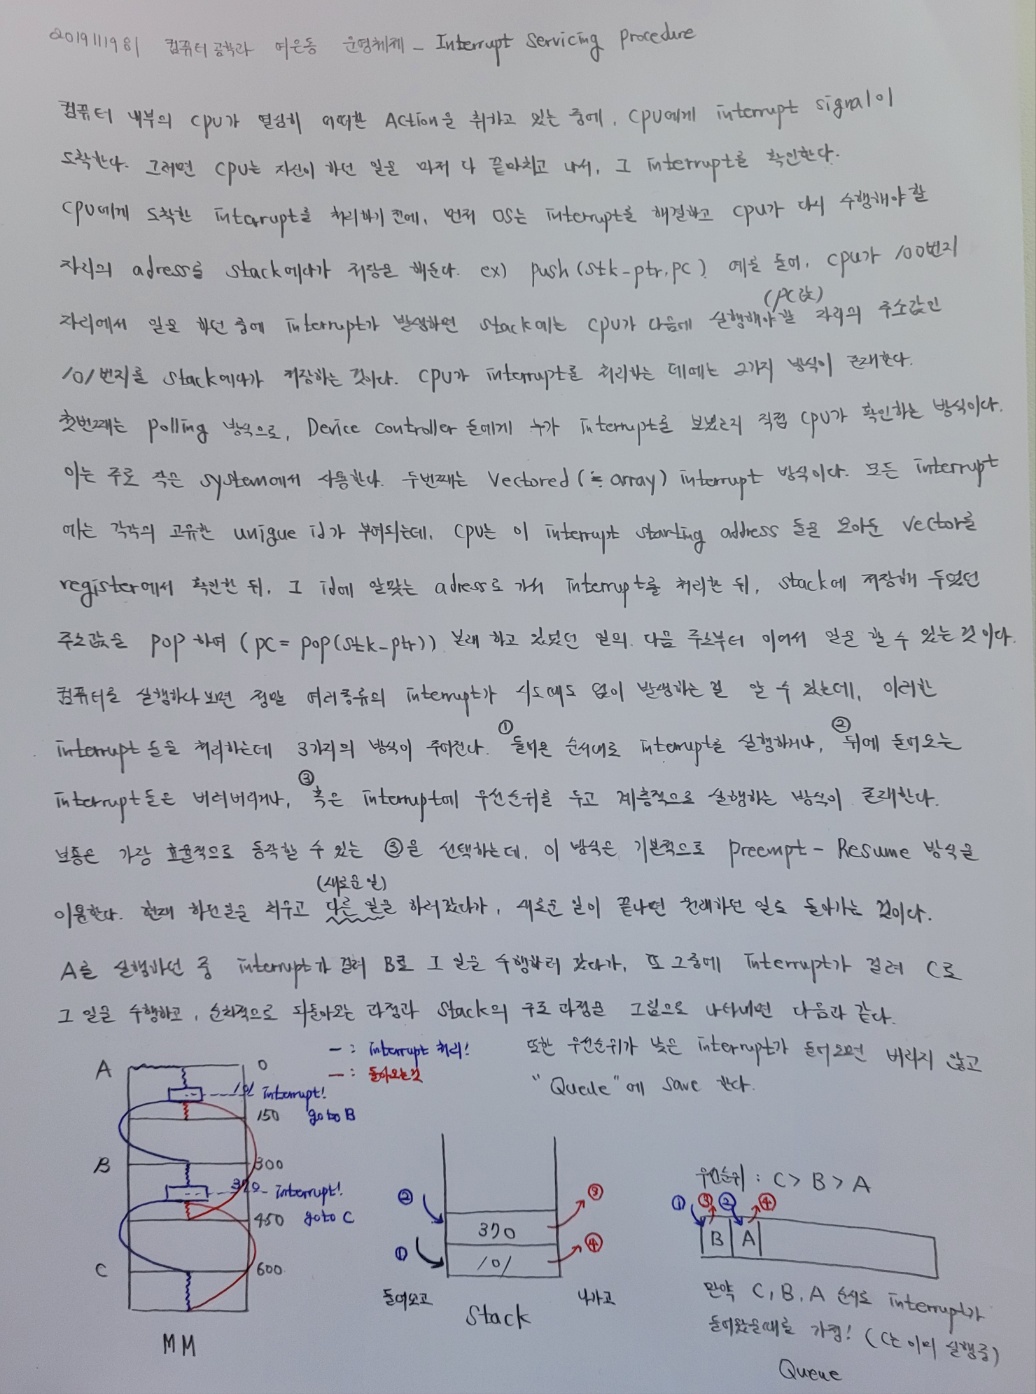 201911981 컴퓨터공학과 어은동 운영체제 - Interrupt Servicing Procedure
컴퓨터 내부의 CPU가 열심히 어떠한 Action을 취하고 있는 중에, CPU에게 interrupt signal이
도착한다. 그러면 CPU는 자신이 하던 일을 마저 다 끝마치고 나서, 그 interrupt를 확인한다.
CPU에게 도착한 interrupt를 처리하기 전에, 먼저 OS는 interrupt를 해결하고 CPU가 다시 수행해야 할
자리의 adress를 stack에다가 저장을 해둔다. ex) push(stk-ptr, pc) 예를 들어, CPU가 100번지
자리에서 일을 하던 중에 interrupt가 발생하면 stack에는 CPU가 다음에 실행해야할 (PC값) 자리의 주소값인
101번지를 stack에다가 저장하는 것이다. CPU가 interrupt를 처리하는 데에는 2가지 방식이 존재한다.
첫번째는 polling 방식으로, Device controller 들에게 누가 interrupt를 보냈는지 직접 CPU가 확인하는 방식이다.
이는 주로 작은 system에서 사용한다. 두번째는 Vectored (≒ array) interrupt 방식이다. 모든 interrupt
에는 각각의 고유한 unique id가 부여되는데, CPU는 이 interrupt starting address 들을 모아둔 vector를
register에서 확인한 뒤, 그 id에 알맞는 adress로 가서 interrupt를 처리한 뒤, stack에 저장해 두었던
주소값을 pop 하여 (pc = pop(stk-ptr)) 본래 하고 있었던 일의 다음 주소부터 이어서 일을 할 수 있는 것이다.
컴퓨터를 실행하다 보면 정말 여러종류의 interrupt가 시도때도 없이 발생하는 걸 알 수 있는데, 이러한
interrupt 들을 처리하는데 3가지의 방식이 주어진다. ① 들어온 순서대로 interrupt를 실행하거나, ② 뒤에 들어오는
interrupt들은 버려버리거나, ③ 혹은 interrupt에 우선순위를 두고 계층적으로 실행하는 방식이 존재한다.
보통은 가장 효율적으로 동작할 수 있는 ③을 선택하는데, 이 방식은 기본적으로 preempt - Resume 방식을
이용한다. 현재 하던일을 치우고 다른 일을 (새로운 일) 하러갔다가, 새로운 일이 끝나면 원래하던 일로 돌아가는 것이다.
A를 실행하던 중 interrupt가 걸려 B로 그 일을 수행하러 갔다가, 또 그중에 interrupt가 걸려 C로
그 일을 수행하고, 순차적으로 되돌아오는 과정과 stack의 구조 과정을 그림으로 나타내면 다음과 같다.
또한 우선순위가 낮은 interrupt가 들어오면 버리지 않고
"Queue"에 save 한다.
- : interrupt 처리!
- : 돌아오는것
A 0
101 interrupt!
150 goto B
B 300
370 interrupt!
450 goto C
C 600
MM
② 370 ③
① 101 ④
들어오고 나가고
Stack
우선순위 : C > B > A
① ③ ② ④
B A
만약 C, B, A 순서로 interrupt가
들어왔을때로 가정! (C는 이미 실행중)
Queue